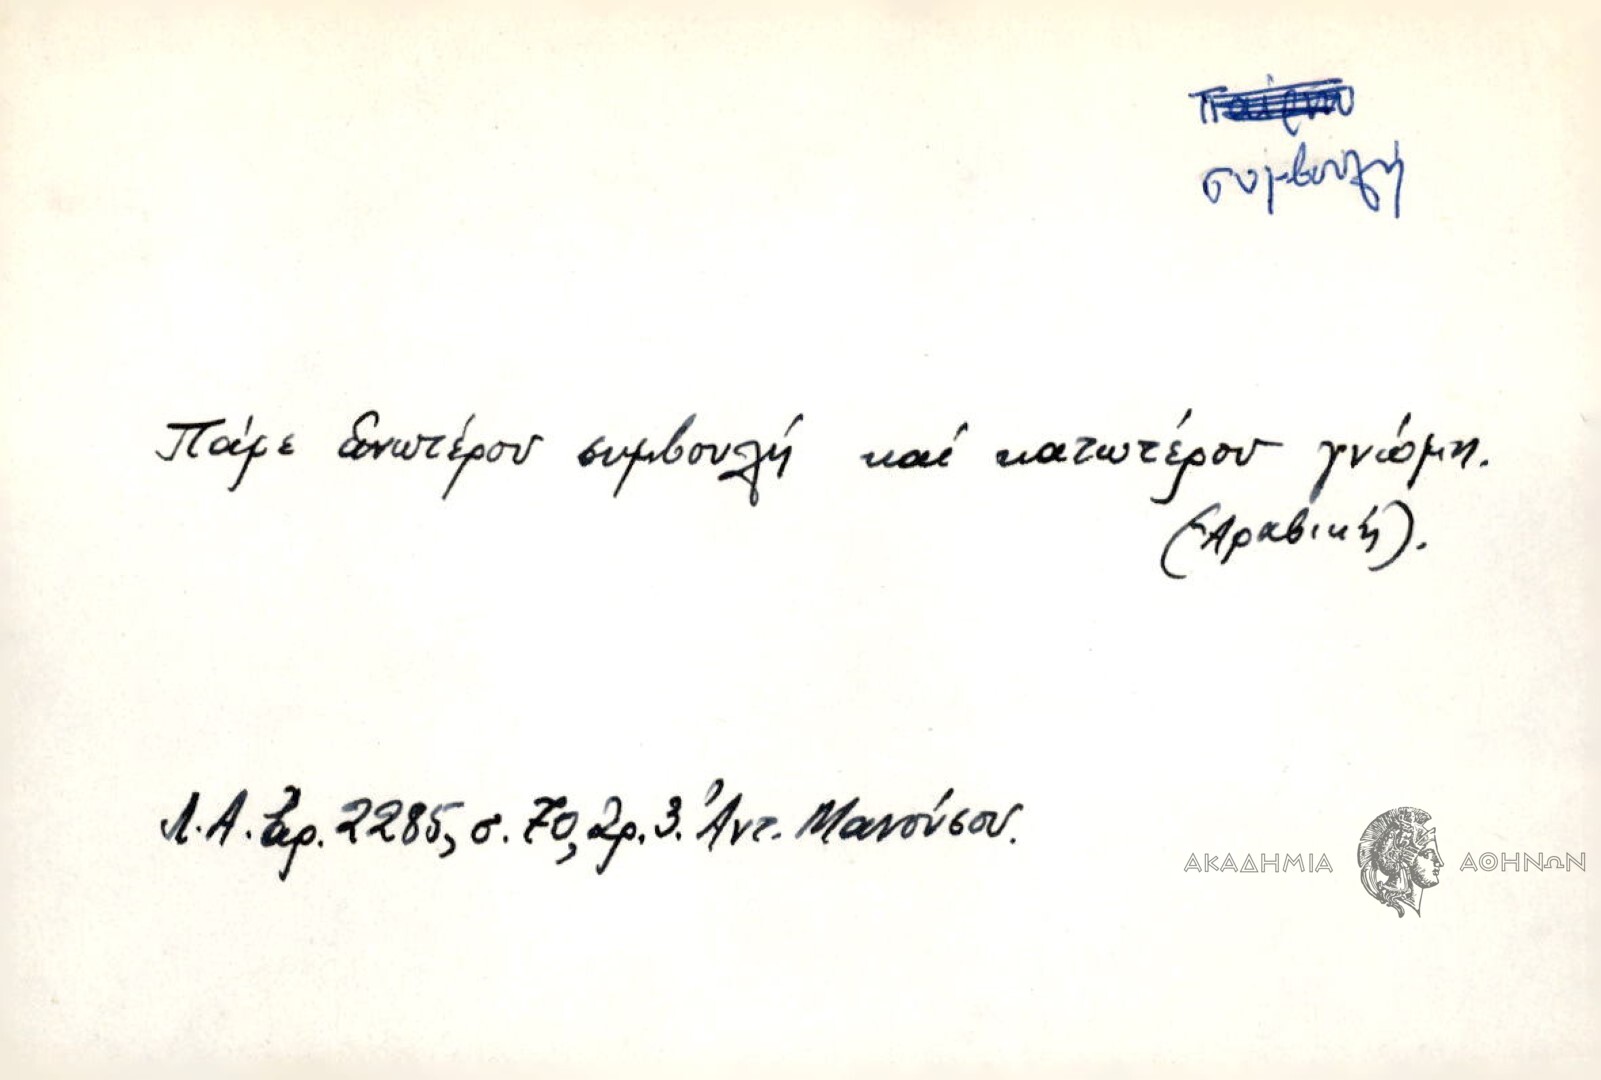 συμβουλή
Πάμε ἀνωτέρου συμβουλή καί κατωτέρου γνώμη.
(Ἀραβική).
Λ.Α. ἀρ. 2285, σ. 70, ἀρ. 3. Ἀντ. Μανούσου.
ΑΚΑΔΗΜΙΑ ΑΘΗΝΩΝ